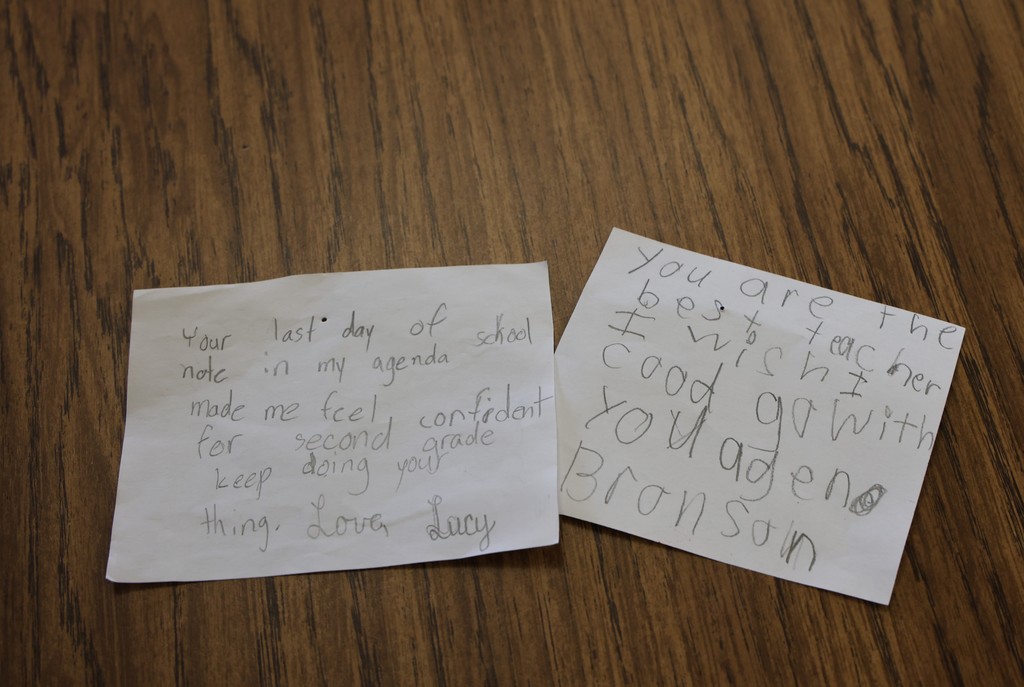 Your last day of school
note in my agenda
made me feel confident
for second grade
keep doing your
thing. Love, Lucy
you are the
best teacher
I wish I
cood go with
you agen
Bronson